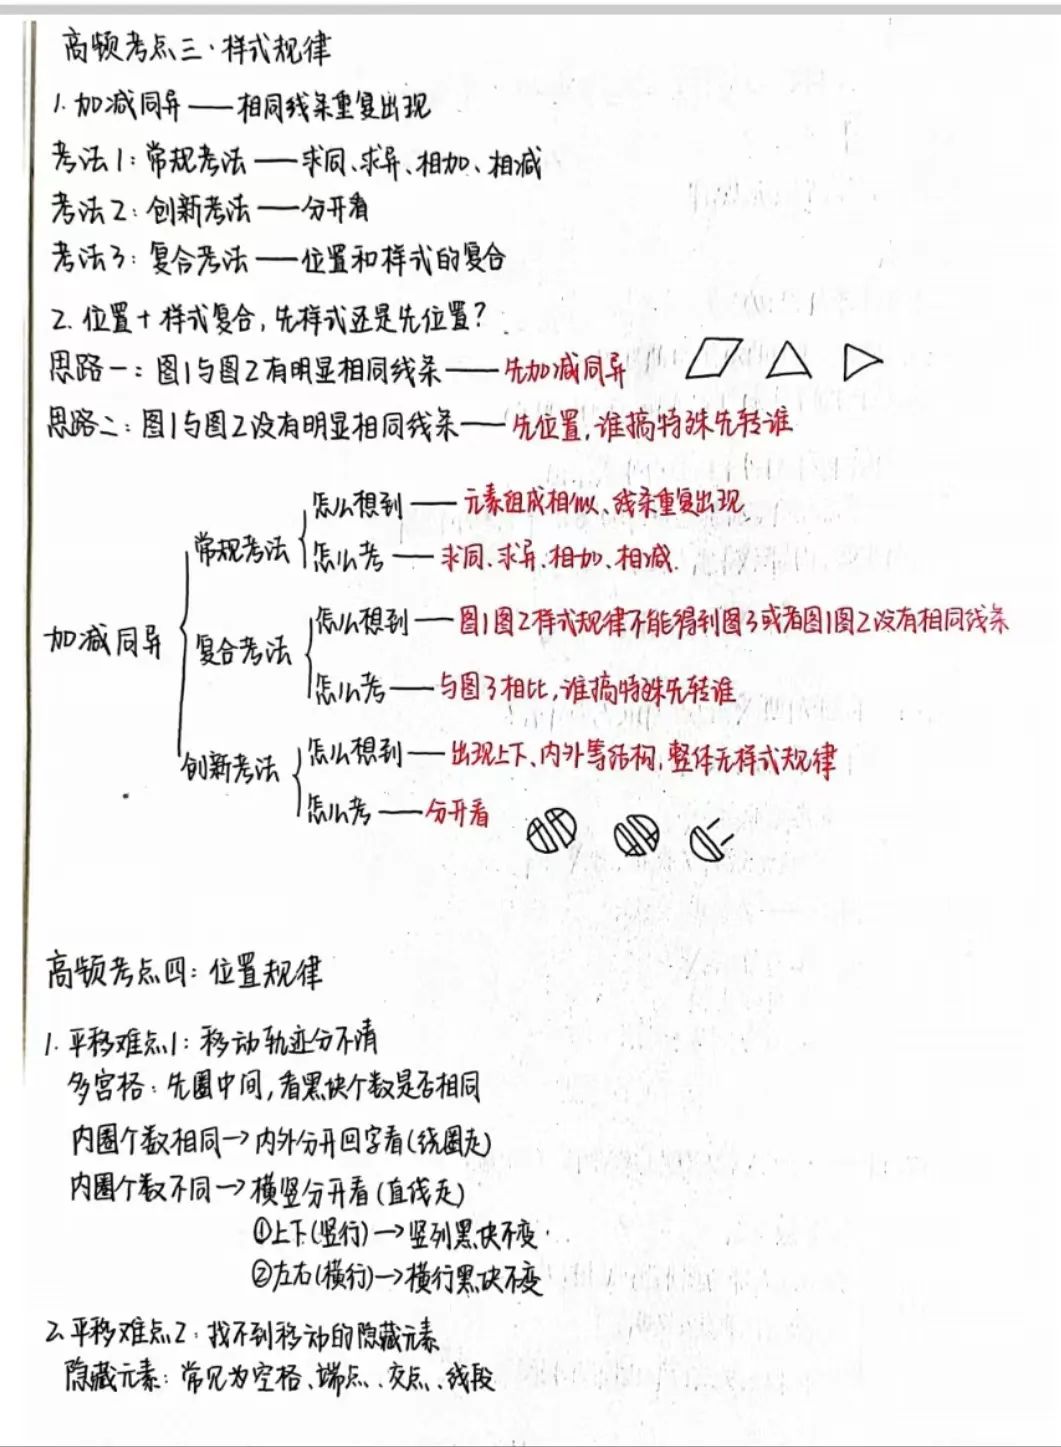 高频考点三·样式规律
1.加减同异——相同线条重复出现
考法1:常规考法——求同、求异、相加、相减
考法2:创新考法——分开看
考法3:复合考法——位置和样式的复合
2.位置+样式复合,先样式还是先位置?
思路一:图1与图2有明显相同线条——先加减同异
思路二:图1与图2没有明显相同线条——先位置,谁搞特殊先转谁
加减同异
常规考法
怎么想到——元素组成相似、线条重复出现
怎么考——求同、求异、相加、相减
复合考法
怎么想到——图1图2样式规律不能得到图3或者图1图2没有相同线条
怎么考——与图3相比,谁搞特殊先转谁
创新考法
怎么想到——出现上下、内外等结构,整体无样式规律
怎么考——分开看
高频考点四:位置规律
1.平移难点1:移动轨迹分不清
多宫格:先圈中间,看黑块个数是否相同
内圈个数相同→内外分开回字看(绕圈走)
内圈个数不同→横竖分开看(直线走)
①上下(竖行)→竖列黑块不变
②左右(横行)→横行黑块不变
2.平移难点2:找不到移动的隐藏元素
隐藏元素:常见为空格、端点、交点、线段